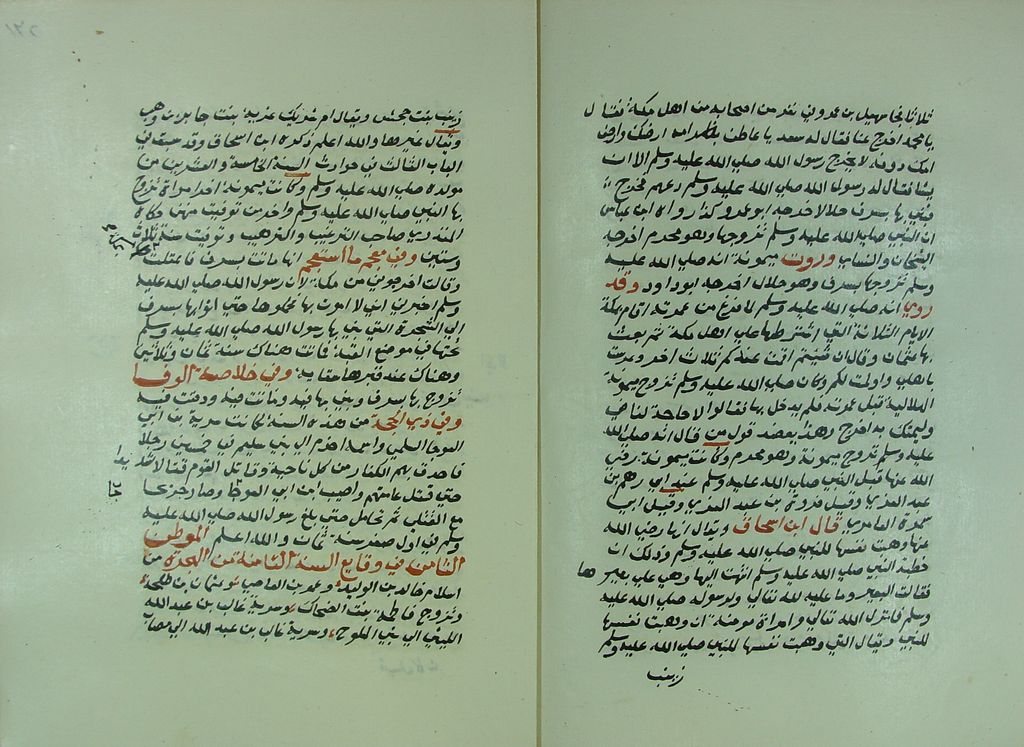 ثلاثا فجا سهيل بن عمرو في نفر من اصحابه من اهل مكة فقال
يا محمد اخرج عنا فقال له سعد يا عاطن بظر امه ارضك وارض
امك دونه لا يخرج رسول الله صلى الله عليه وسلم الا ان
يشا فقال له رسول الله صلى الله عليه وسلم دعهم فخرج
فبنى بها بسرف حلالا اخرجه ابو عمرو وكذا رواه ابن عباس
ان النبي صلى الله عليه وسلم تزوجها وهو محرم اخرجه
الشيخان والنساي وروت ميمونة انه صلى الله عليه
وسلم تزوجها بسرف وهو حلال اخرجه ابو داود وقد
روي انه صلى الله عليه وسلم لما فرغ من عمرته اتام بمكة
الايام الثلاثة التي اشترطها على اهل مكة ثم بعث
بها عثمان وقال ان شئتم اقمت عندكم ثلاث اخر وعرست
باهلي واولمت لكم وكان صلى الله عليه وسلم تزوج ميمونة
الهلالية قبل عمرته فلم يدخل بها فقالوا لا حاجة لنا في
وليمتك بل اخرج وهذا يعضد قول من قال انه صلى الله
عليه وسلم تزوج ميمونة وهو محرم وكانت ميمونة رضي
الله عنها قبل النبي صلى الله عليه وسلم عند ابي رهم بن
عبد العزى وقيل فروة بن عبد العزى وقيل ابي
سبرة العامري قال ابن اسحاق ويقال انها رضي الله
عنها وهبت نفسها للنبي صلى الله عليه وسلم وذلك ان
خطبة النبي صلى الله عليه وسلم انتهت اليها وهي على بعيرها
فقالت البعير وما عليه لله تعالى ولرسوله صلى الله عليه
وسلم فانزل الله تعالى وامراة مومنة ان وهبت نفسها
للنبي ويقال التي وهبت نفسها للنبي صلى الله عليه وسلم
زينب
زينب بنت جحش ويقال ام شريك غزية بنت جابر بن وهب
ويقال غيرها والله اعلم ذكره ابن اسحاق وقد سبق في
الباب الثالث في حوادث السنة الخامسة والعشرين من
مولده صلى الله عليه وسلم وكانت ميمونة اخر امراة تزوج
بها النبي صلى الله عليه وسلم واخر من توفيت منهن حكاه
المنذري صاحب الترغيب والترهيب وتوفيت سنة ثلاث
وستين وفي معجم ما استعجم انها ماتت بسرف
وقالت اخرجوني من مكة لان رسول الله صلى الله عليه
وسلم اخبرني اني لا اموت بها فحملوها حتى اتوا بها بسرف
الى الشجرة التي بنى بها رسول الله صلى الله عليه وسلم
تحتها في موضع القبة فماتت هناك سنة ثمان وثلاثين
وهناك عند قبرها سقاية وفي خلاصة الوفا
تزوج بها بسرف وبنى بها فيه وماتت فيه ودفنت فيه
وفي ذي الحجة من هذه السنة كانت سرية ابن ابي
العوجا السلمي واسمه اخرم الى بني سليم في خمسين رجلا
فاحدق بهم الكفار من كل ناحية وقاتل القوم قتالا شديدا
حتى قتل عامتهم واصيب ابن ابي العوجا وصار جريحا
مع القتلى ثم تحامل حتى بلغ رسول الله صلى الله عليه
وسلم في اول صفر سنة ثمان والله اعلم الموطن
الثامن في وقايع السنة الثامنة من الهجرة من
اسلام خالد بن الوليد وعمرو بن العاصي وعثمان بن طلحة
وتزوج فاطمة بنت الضحاك وسرية غالب بن عبد الله
الليثي الى بني الملوح وسرية غالب بن عبد الله الى مصاب